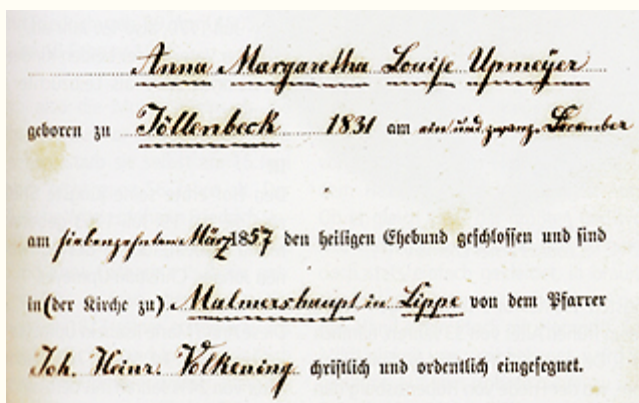 Anna Margaretha Louise Upmeyer
geboren zu Jöllenbeck 1831 am ein und zwanz. December
am siebenzehnten März 1857 den heiligen Ehebund geschlossen und sind
in (der Kirche zu) Malmershaupt in Lippe von dem Pfarrer
Joh. Heinr. Volkening christlich und ordentlich eingesegnet.